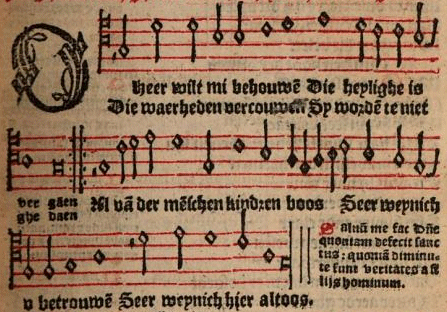 O heer wilt mi behouwē Die heylighe is
Die waerheden vercouwen Sy wordē te niet
ver gaen
ghe daen
Al vā der mēschen kindꝛen boos Seer weynich
Saluū me fac Dñe
quoniam defecit sanc
tus: quoniā diminu-
te sunt veritates a fi
lijs hominum.
v betrouwē Seer weynich hier altoos.